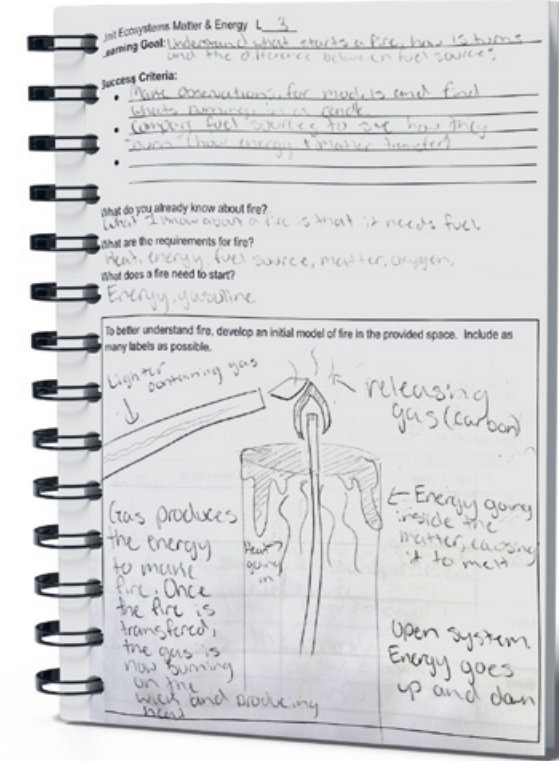 Unit Ecosystems Matter & Energy L 3
Learning Goal: Understand what starts a fire, how is turns
and the difference between fuel sources
Success Criteria:
• Make observations for models and find
whats burning in a candle.
• Compare fuel sources to see how they
burn (how energy + matter transfer)
•
What do you already know about fire?
What I know about a fire is that it needs fuel.
What are the requirements for fire?
Heat, energy, fuel source, matter, oxygen,
What does a fire need to start?
Energy, gasoline
To better understand fire, develop an initial model of fire in the provided space. Include as
many labels as possible.
Lighter
containing gas
releasing
gas (carbon)
Energy going
inside the
matter, causing
it to melt
Heat
going
in
Gas produces
the energy
to make
fire. Once
the fire is
transfered,
the gas is
now burning
on the
wick and producing
heat
Open system
Energy goes
up and down